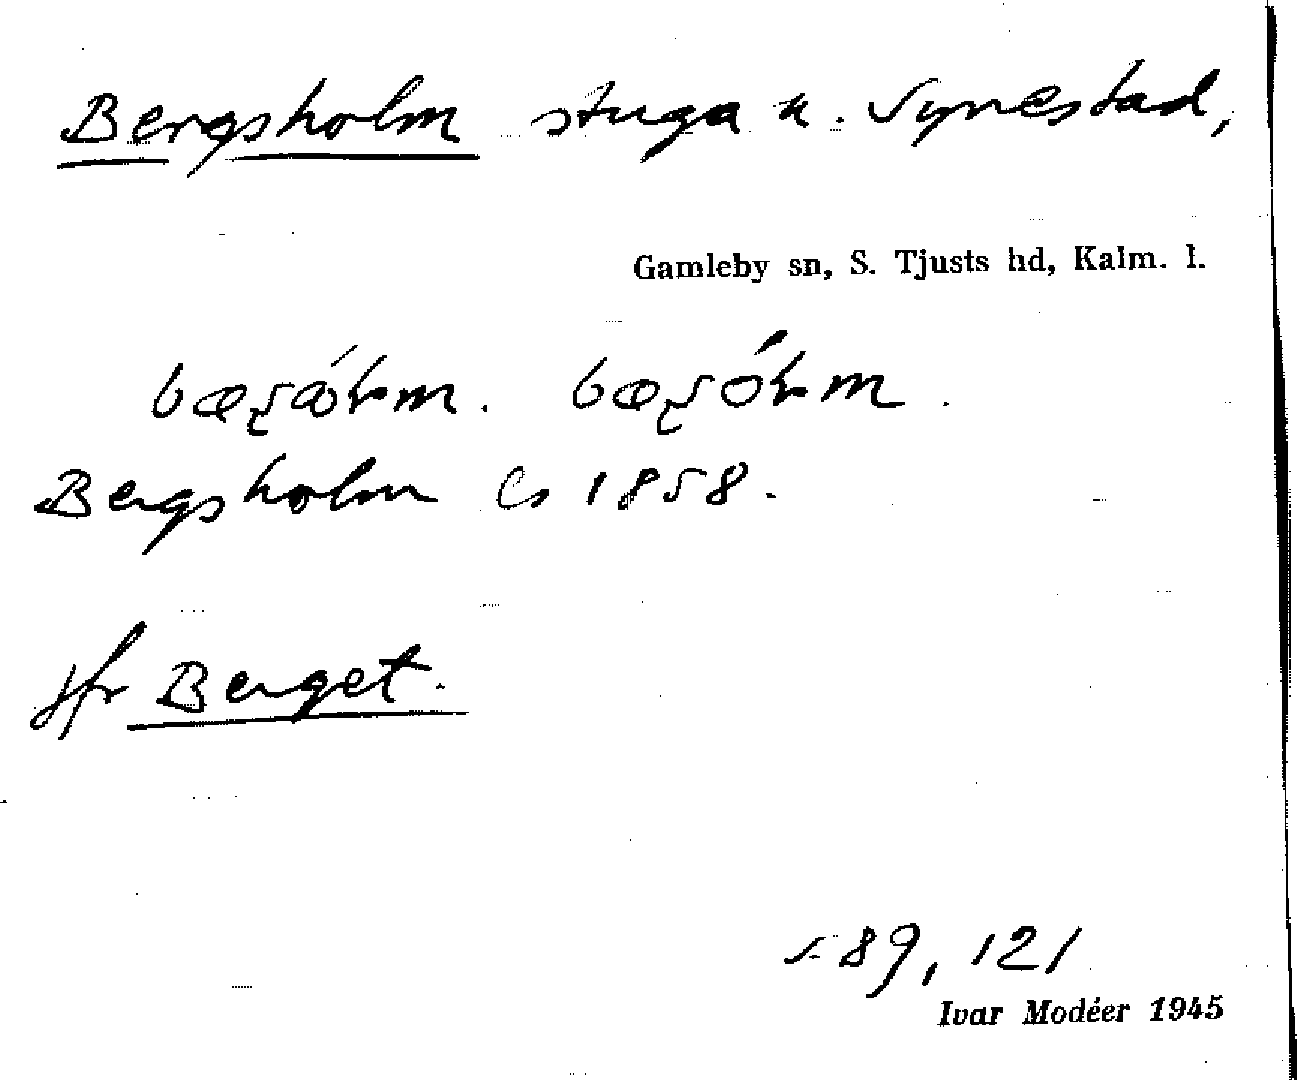 Bergsholm stuga u. Synestad,
Gamleby sn, S. Tjusts hd, Kalm. l.
Bergsholm Ls 1858.
Jfr Berget.
s. 89, 121
Ivar Modéer 1945